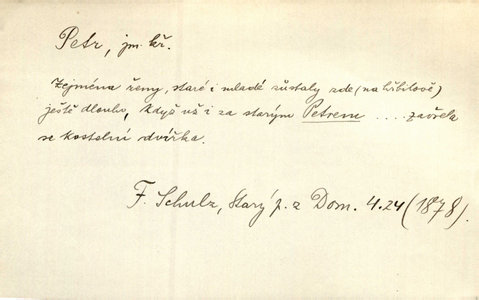 Petr, jm. kř.
Zejména ženy, staré i mladé zůstaly zde (na hřbitově)
ještě dlouho, když už i za starým Petrem .... zavřela
se kostelní dvířka.
F. Schulz, Starý p. z Dom. 4.24 (1878).